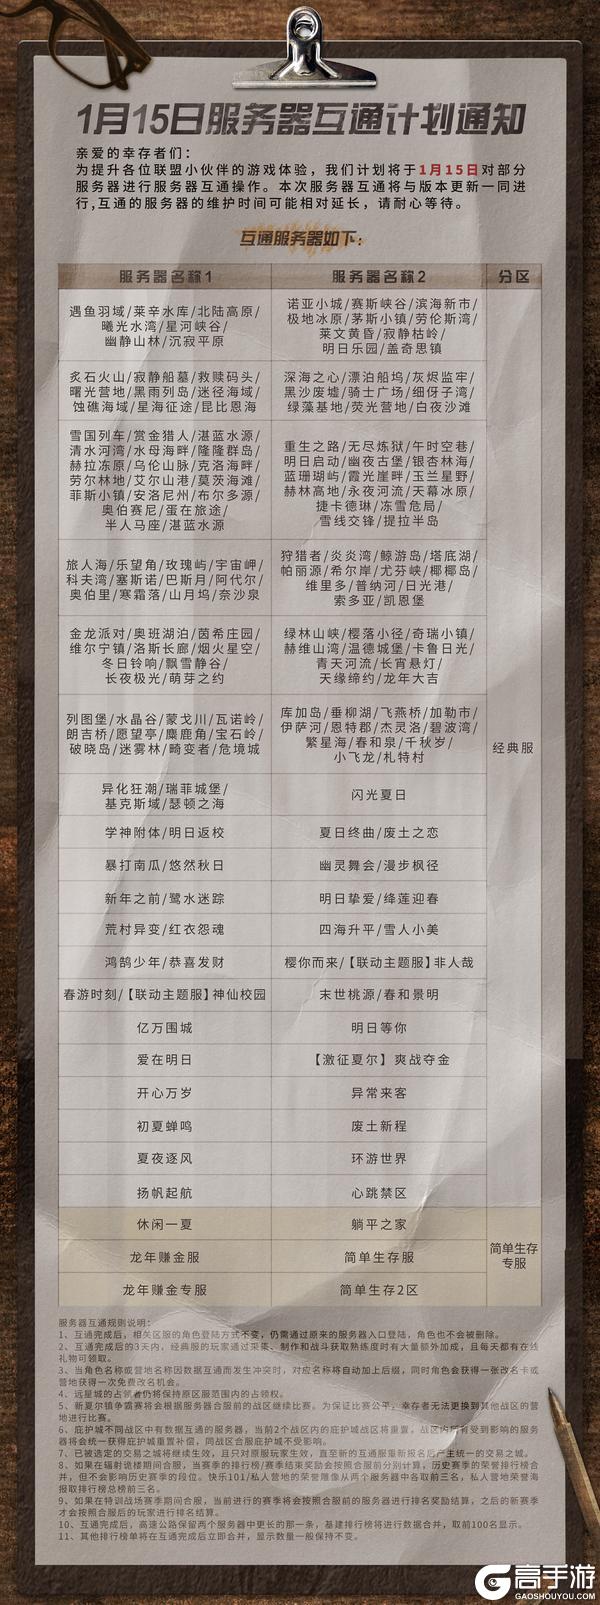 1月15日服务器互通计划通知
亲爱的幸存者们：
为提升各位联盟小伙伴的游戏体验，我们计划将于1月15日对部分
服务器进行服务器互通操作。本次服务器互通将与版本更新一同进
行,互通的服务器的维护时间可能相对延长，请耐心等待。
互通服务器如下：
服务器名称1 服务器名称2 分区
遇鱼羽域/莱辛水库/北陆高原/
曦光水湾/星河峡谷/
幽静山林/沉寂平原
诺亚小城/赛斯峡谷/滨海新市/
极地冰原/茅斯小镇/劳伦斯湾/
莱文黄昏/寂静枯岭/
明日乐园/盖奇思镇
炙石火山/寂静船墓/救赎码头/
曙光营地/黑雨列岛/迷径海域/
蚀礁海域/星海征途/昆比恩海
深海之心/漂泊船坞/灰烬监牢/
黑沙废墟/骑士广场/细伢子湾/
绿藻基地/荧光营地/白夜沙滩
雪国列车/赏金猎人/湛蓝水源/
清水河湾/水母海畔/隆隆群岛/
赫拉冻原/乌伦山脉/克洛海畔/
劳尔林地/艾尔山港/莫茨海滩/
菲斯小镇/安洛尼州/布尔多源/
奥伯赛尼/蛋在旅途/
半人马座/湛蓝水源
重生之路/无尽炼狱/午时空巷/
明日启动/幽夜古堡/银杏林海/
蓝珊瑚屿/霞光崖畔/玉兰星野/
赫林高地/永夜河流/天幕冰原/
捷卡德琳/冻雪危局/
雪线交锋/提拉半岛
旅人海/乐望角/玫瑰屿/宇宙岬/
科夫湾/塞斯诺/巴斯月/阿代尔/
奥伯里/寒霜落/山月坞/奈沙泉
狩猎者/炎炎湾/鲸游岛/塔底湖/
帕丽源/希尔岸/尤芬峡/椰椰岛/
维里多/普纳河/日光港/
索多亚/凯恩堡
金龙派对/奥班湖泊/茵希庄园/
维尔宁镇/洛斯长廊/烟火星空/
冬日铃响/飘雪静谷/
长夜极光/萌芽之约
绿林山峡/樱落小径/奇瑞小镇/
赫维山湾/温德城堡/卡鲁日光/
青天河流/长宵悬灯/
天缘缔约/龙年大吉
列图堡/水晶谷/蒙戈川/瓦诺岭/
朗吉桥/愿望亭/麋鹿角/宝石岭/
破晓岛/迷雾林/畸变者/危境城
库加岛/垂柳湖/飞燕桥/加勒市/
伊萨河/恩特郡/杰灵洛/碧波湾/
繁星海/春和泉/千秋岁/
小飞龙/札特村
经典服
异化狂潮/瑞菲城堡/
基克斯域/瑟顿之海
闪光夏日
学神附体/明日返校 夏日终曲/废土之恋
暴打南瓜/悠然秋日 幽灵舞会/漫步枫径
新年之前/鹭水迷踪 明日挚爱/绛莲迎春
荒村异变/红衣怨魂 四海升平/雪人小美
鸿鹄少年/恭喜发财 樱你而来/【联动主题服】非人哉
春游时刻/【联动主题服】神仙校园 末世桃源/春和景明
亿万围城 明日等你
爱在明日 【激征夏尔】爽战夺金
开心万岁 异常来客
初夏蝉鸣 废土新程
夏夜逐风 环游世界
扬帆起航 心跳禁区
休闲一夏 躺平之家
龙年赚金服 简单生存服
简单生存
专服
龙年赚金专服 简单生存2区
服务器互通规则说明：
1、互通完成后，相关区服的角色登陆方式不变，仍需通过原来的服务器入口登陆，角色也不会被删除。
2、互通完成后的3天内，经典服的玩家通过采集、制作和战斗获取熟练度时有大量额外加成，且每天都有在线
礼物可领取。
3、当角色名称或营地名称因数据互通而发生冲突时，对应名称将自动加上后缀，同时角色会获得一张改名卡或
营地获得一次免费改名机会。
4、远星城的占领者仍将保持原区服范围内的占领权。
5、新夏尔镇争霸赛将会根据服务器合服前的战区继续比赛。为保证比赛公平，幸存者无法更换到其他战区的营
地进行比赛。
6、庇护城不同战区中有数据互通的服务器，当前2个战区内的庇护城战区将重置，战区内所有受到影响的服务
器将会统一获得庇护城重置补偿，同战区合服庇护城不受影响。
7、已被选定的交易之城将继续生效，且只对原服玩家生效，直至新的互通服重新报名后产主统一的交易之城。
8、如果在辐射诡楼期间合服，当赛季的排行榜/赛季结束奖励会按照合服前分别计算，历史赛季的荣誉排行榜合
并，但不会影响历史赛季的段位。快乐101/私人营地的荣誉雕像从两个服务器中各取前三名，私人营地荣誉海
报取排行榜总榜前三名。
9、如果在特训战场赛季期间合服，当前进行的赛季将会按照合服前的服务器进行排名奖励结算，之后的新赛季
才会按照合服后的玩家进行排名结算。
10、互通完成后，高速公路保留两个服务器中更长的那一条，基建排行榜将进行数据合并，取前100名显示。
11、其他排行榜单将在互通完成后立即合并，显示数量一般保持不变。
高手游
GAOSHOUYOU.COM